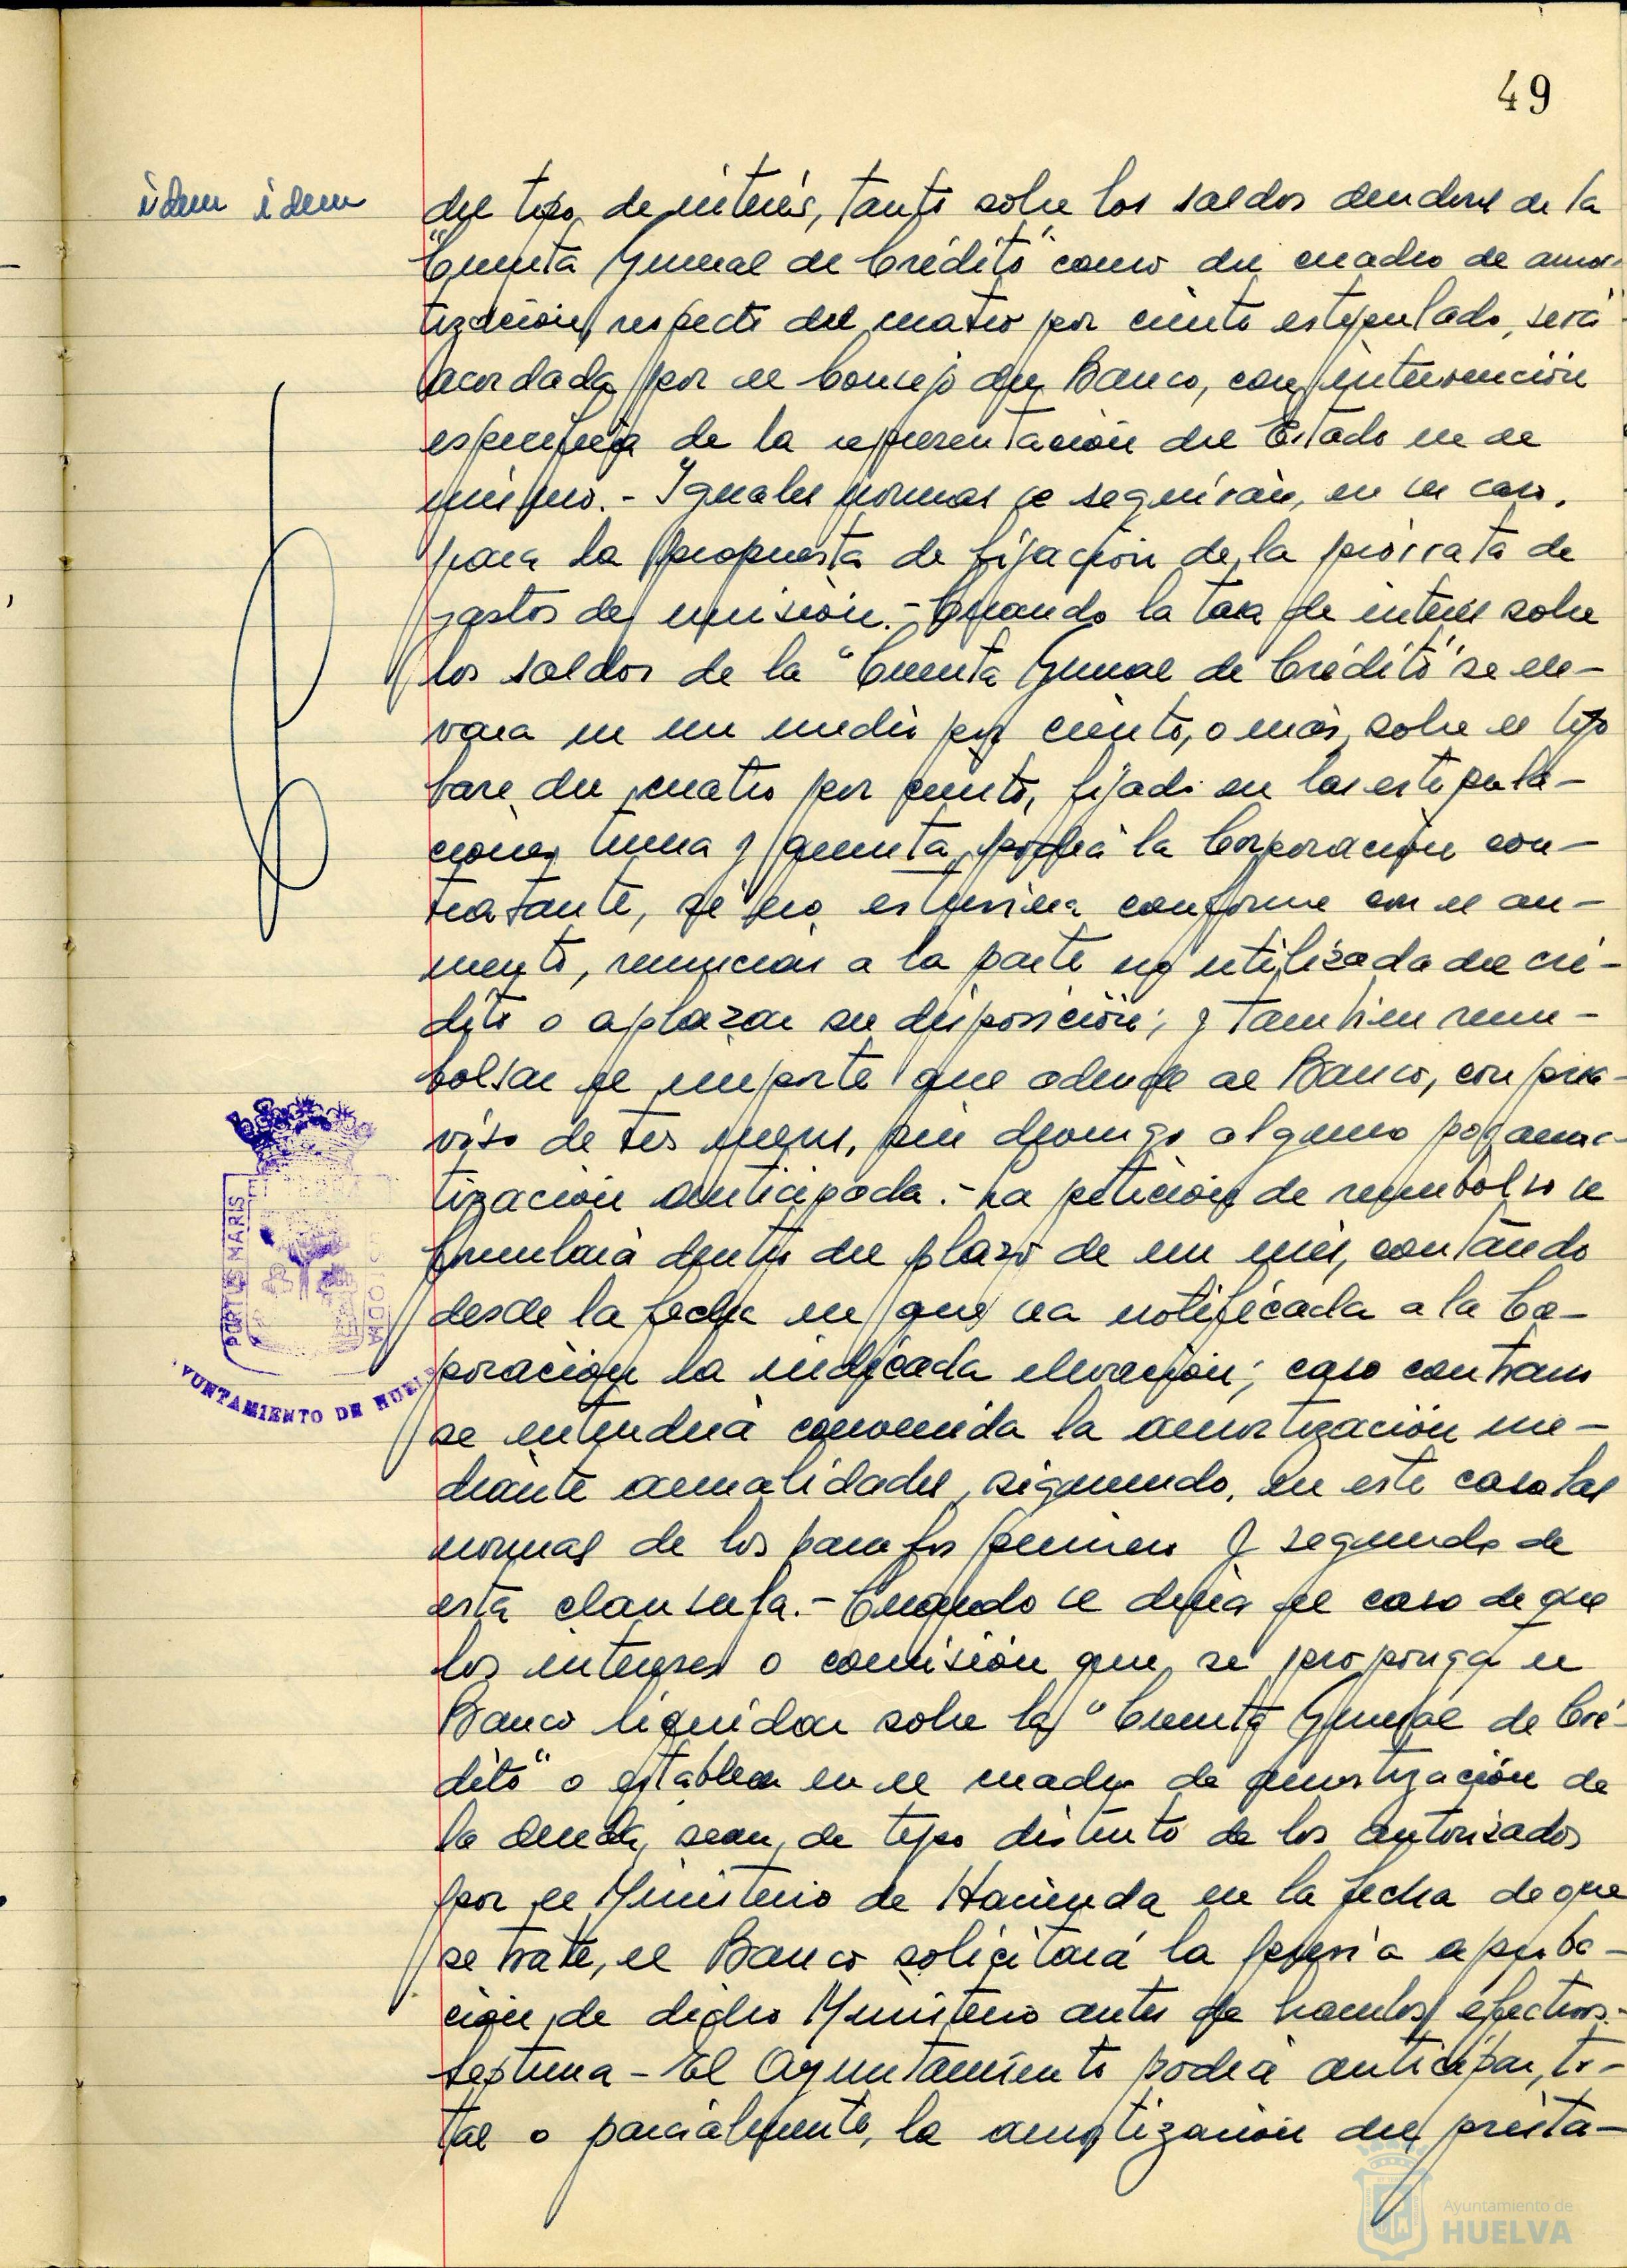 49
idem idem
del tipo de interés, tanto sobre los saldos deudores de la
"Cuenta General de Crédito" como del cuadro de amor-
tización, respecto del cuatro por ciento estipulado, será
acordada por el Consejo del Banco, con intervención
específica de la representación del Estado en el
mismo.- Iguales normas se seguirán, en su caso,
para la propuesta de fijación de la prórrata de
gastos de emisión.- Cuando la tasa de interés sobre
los saldos de la "Cuenta General de Crédito" se ele-
vara en un medio por ciento, o más, sobre el tipo
base del cuatro por ciento, fijado en las estipula-
ciones tercera y quinta, podrá la Corporación con-
tratante, si no estuviera conforme con el au-
mento, renunciar a la parte no utilizada del cré-
dito o aplazar su disposición; y tambien reem-
bolsar el importe que adeude al Banco, con prea-
viso de tres meses, sin devengo alguno por amor-
tización anticipada.- La petición de reembolso se
formulará dentro del plazo de un mes, contando
desde la fecha en que sea notificada a la Co-
poración la indicada elevación; caso contrario
se entenderá convenida la amortización me-
diante anualidades, siguiendo, en este caso las
normas de los parrafos primero y segundo de
esta clausula.- Cuando se diera el caso de que
los intereses o comisión que se proponga el
Banco liquidar sobre la "Cuenta General de Cré-
dito" o establecer en el cuadro de amortización de
la deuda, sean de tipo distinto de los autorizados
por el Ministerio de Hacienda en la fecha de que
se trate, el Banco solicitará la previa aproba-
ción de dicho Ministerio antes de hacerlos efectivos.-
Septima - El Ayuntamiento podrá anticipar, to-
tal o parcialmente, la amortización del présta-
PORTUS MARIS
CUSTODIA
AYUNTAMIENTO DE HUELVA
Ayuntamiento de
HUELVA